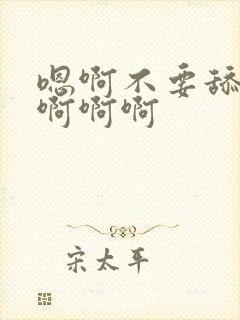 嗯啊不要舔
啊啊啊
宋太平